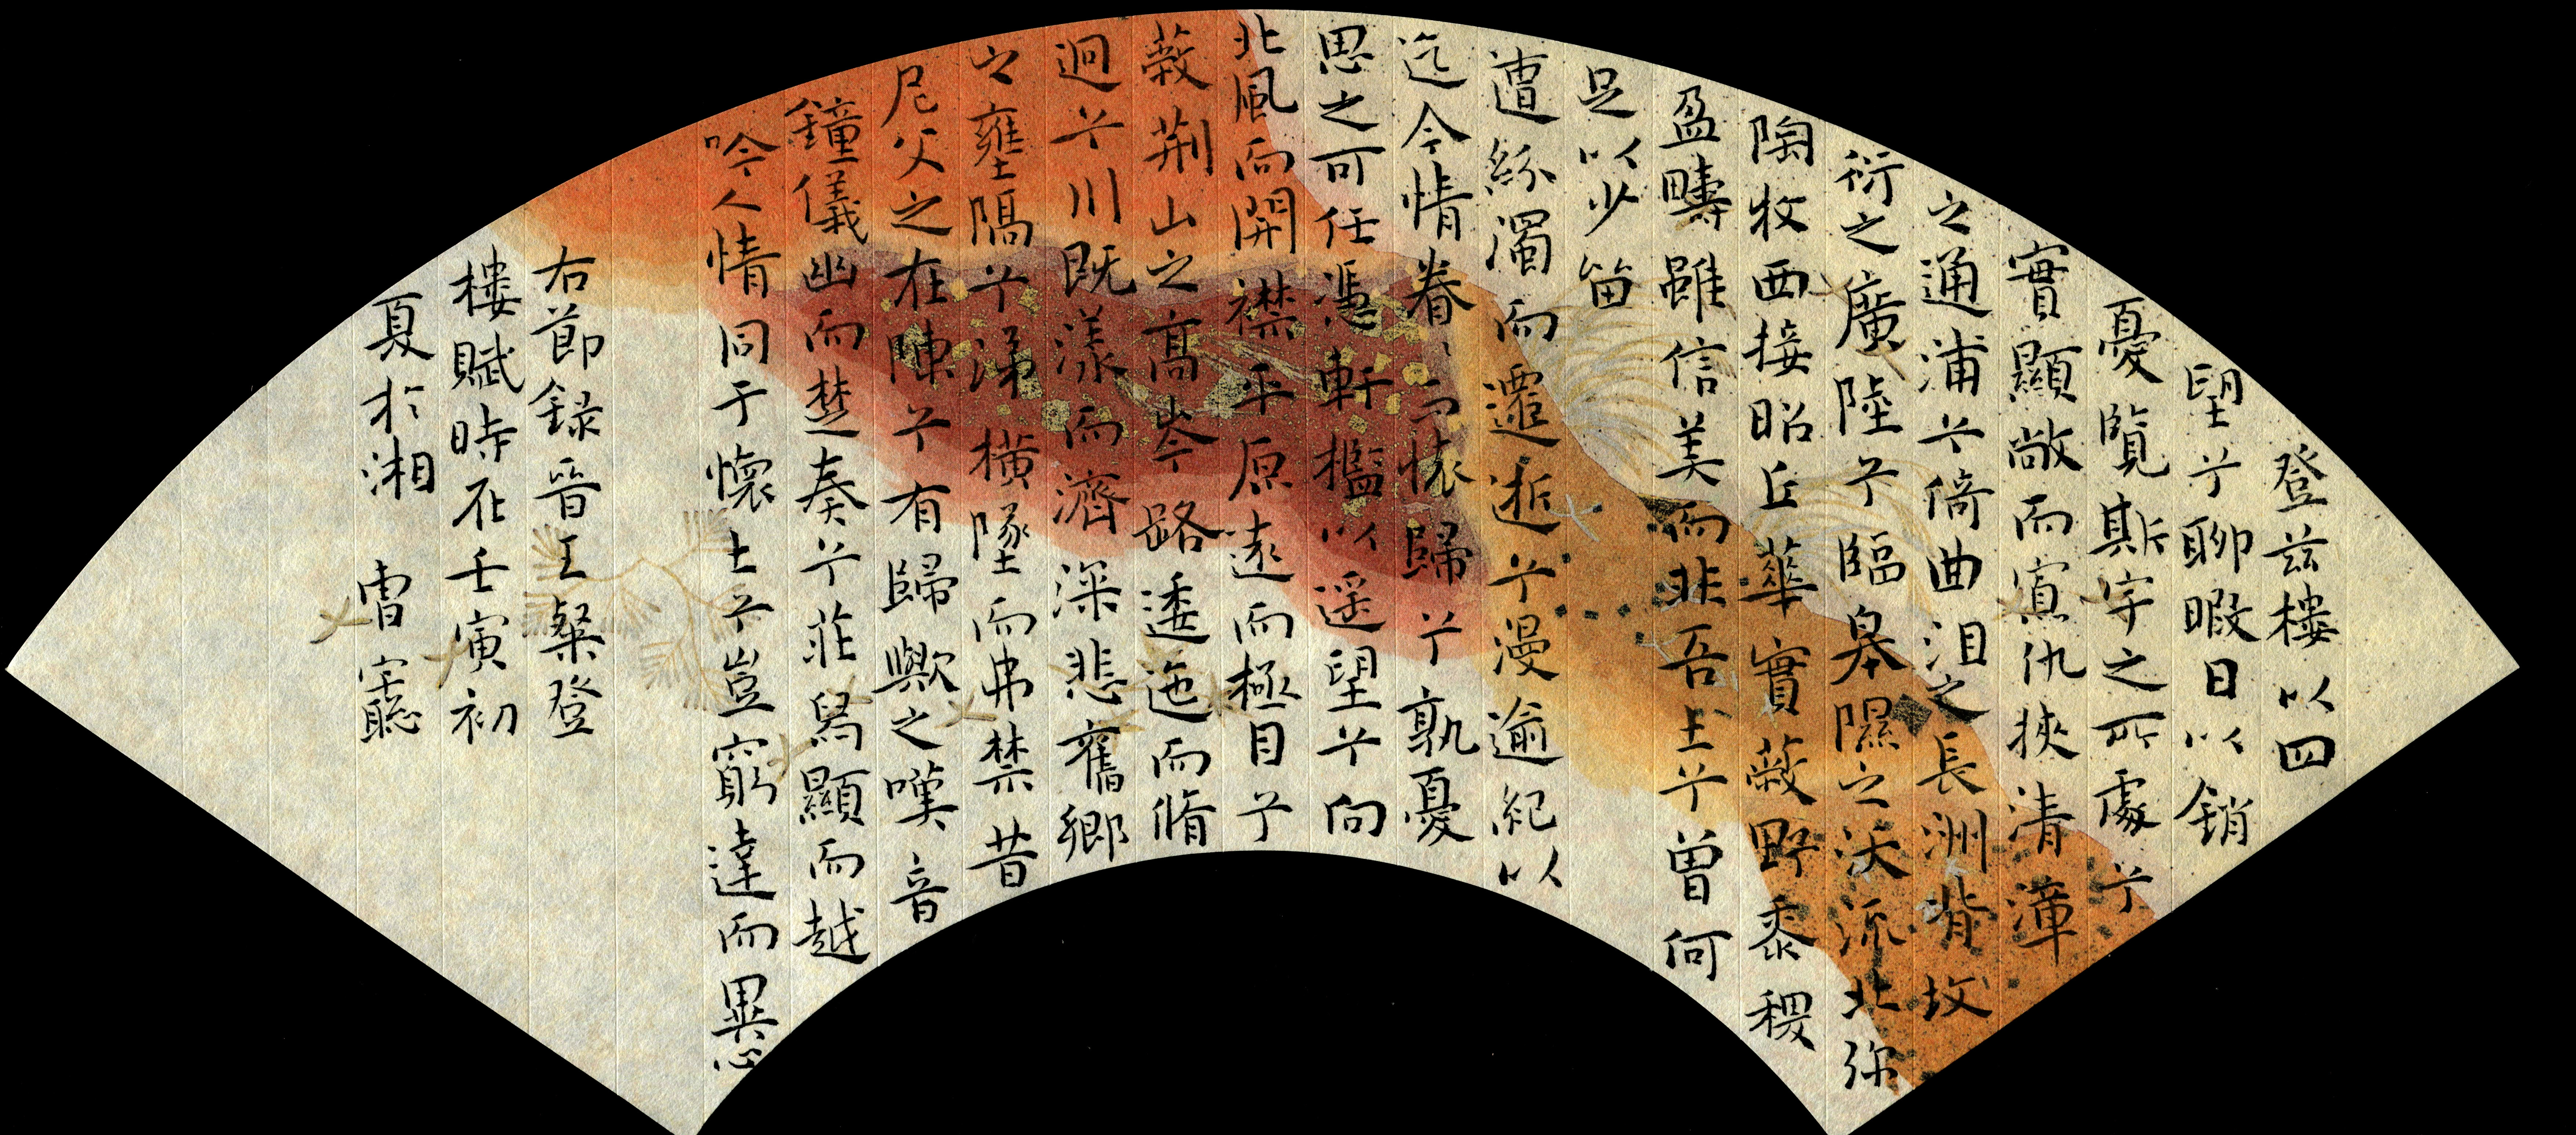 登茲樓以四
望兮聊暇日以銷
憂覽斯宇之所處兮
實顯敞而寡仇挾清漳
之通浦兮倚曲沮之長洲背坟
衍之廣陸兮臨皋隰之沃流北弥
陶牧西接昭丘華實蔽野黍稷
盈疇雖信美而非吾土兮曾何
足以少留
遭紛濁而遷逝兮漫逾紀以
迄今情眷々而懷歸兮孰憂
思之可任憑軒檻以遥望兮向
北風而開襟平原遠而極目兮
蔽荊山之高岑路逶迤而脩
迥兮川既漾而濟深悲舊鄉
之壅隔兮涕橫墜而弗禁昔
尼父之在陳兮有歸歟之嘆音
鐘儀幽而楚奏兮莊舄顯而越
吟人情同于懷土兮豈窮達而異心
右節録晉王粲登
樓賦時在壬寅初
夏於湘 曹